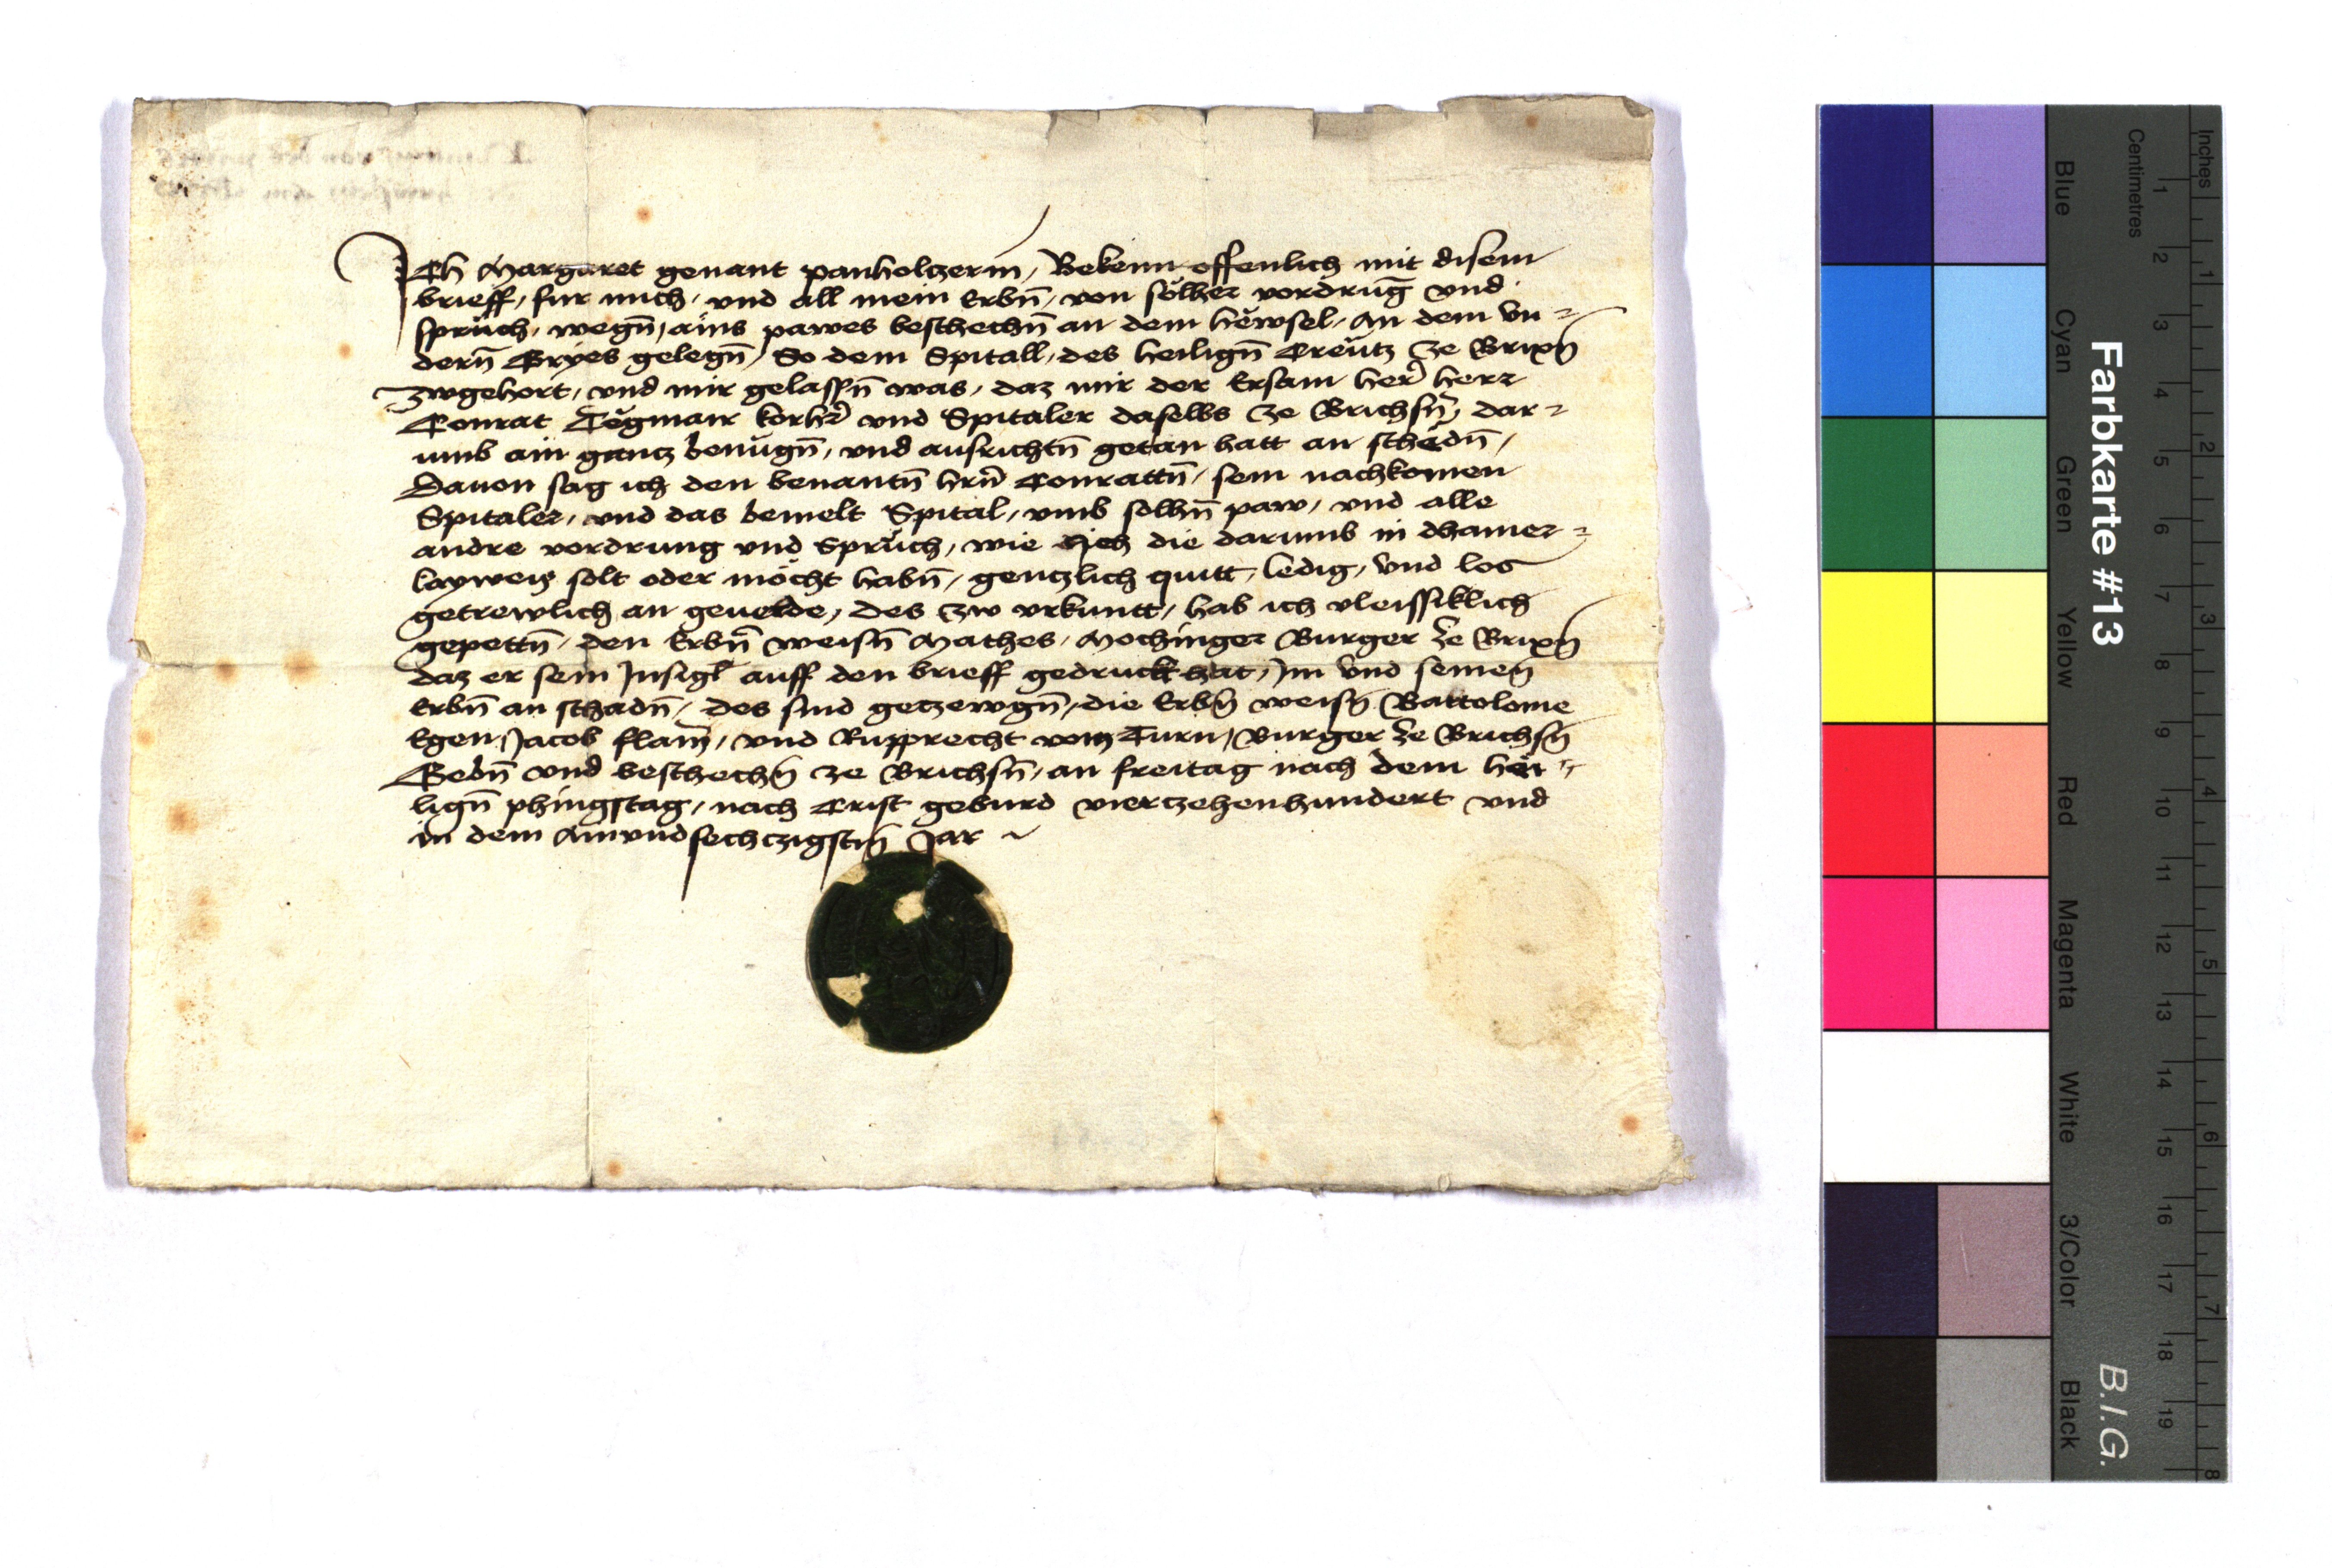 Ich Margaret genant panholtzerin, Bekenn offenlich mit disem
brieff, fur mich, vnd all mein Erbn̄, von sölher vordrūg vnd
sprüch, wegn̄, ains pawes beschechn̄ an dem hëwsel, An dem vn=
dern̄ Gryes gelegn̄, So dem Spitall, des heilign̄ Creütz ze Brixn̄
zwgehort, vnd mir gelassn̄ was, daz mir der Ersam her̄ herr
Conrat Tëgmair korhr̄ vnd Spitaler daselbs ze Brichsn̄, dar=
umb ain gantz benügn̄, vnd ausrichtn̄ getan hatt an schëdn̄,
Dauon sag ich den benantn̄ hrn̄ Conrattn̄, sein nachkomen
Spitaler, vnd das bemelt Spital, vmb solhn̄ paw, vnd alle
andre vordrung vnd Sprüch, wie Ich die darumb in dhainer=
layweis solt oder möcht habn̄, gentzlich quitt, ledig, vnd los
getrewlich an geuerde, des zw vrkuntt, hab ich vleissiklich
gepettn̄, den Erbn̄ weisn̄ Mathes, Mochinger Burger ze Brixn̄
daz er sein Insigl auff den brieff gedruckt hat, Im vnd seinen̄
Erbn̄ an schadn̄, des sind getzewgn̄, die Erbn̄ weisn̄ Battolome
Egen, Jacob flam̄, vnd Rupprecht vom Turn, burger ze Brichsn̄
Gebn̄ vnd beschechn̄ ze Brichsn̄, an freitag nach dem häi=
lign̄ phingstag, nach Crist geburd viertzehenhundert vnd
in dem Ainvndsechtzigstn̄ Jar
Farbkarte #13
B.I.G.
Inches
Centimetres
1 2 3 4 5 6 7 8 9 10 11 12 13 14 15 16 17 18 19
1 2 3 4 5 6 7 8
Blue
Cyan
Green
Yellow
Red
Magenta
White
3/Color
Black